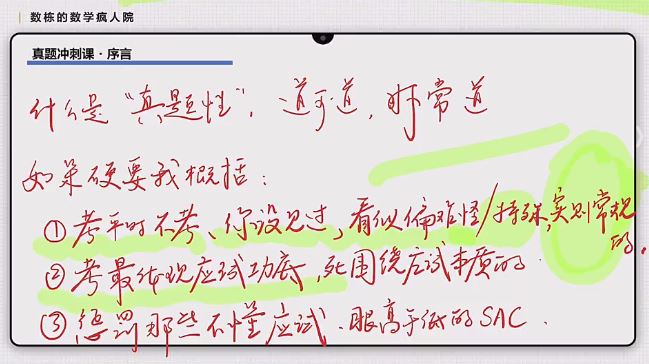 数栋的数学疯人院
真题冲刺课·序言
什么是“真题性”，道可道，非常道
如果硬要我概括：
①考平时不考、你没见过，看似偏难怪/特殊，实则常规的。
②考最体现应试功底，死围绕应试本质的.
③惩罚那些不懂应试、眼高手低的SAC.